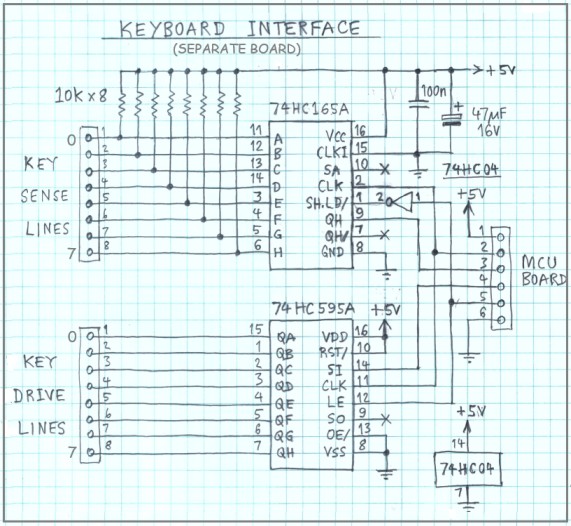 KEYBOARD INTERFACE
(SEPARATE BOARD)
+5V
10K x 8
100n
+
47µF
16V
74HC165A
0
KEY
SENSE
LINES
7
1
2
3
4
5
6
7
8
11 A
12 B
13 C
14 D
3 E
4 F
5 G
6 H
VCC 16
CLKI 15
SA 10
CLK 2
SH.LD/ 1
QH 9
QH/ 7
GND 8
74HC04
2 1
+5V
1
2
3
4
5
6
MCU
BOARD
74HC595A
+5V
0
KEY
DRIVE
LINES
7
1
2
3
4
5
6
7
8
15 QA
1 QB
2 QC
3 QD
4 QE
5 QF
6 QG
7 QH
VDD 16
RST/ 10
SI 14
CLK 11
LE 12
SO 9
OE/ 13
VSS 8
+5V
14
74HC04
7